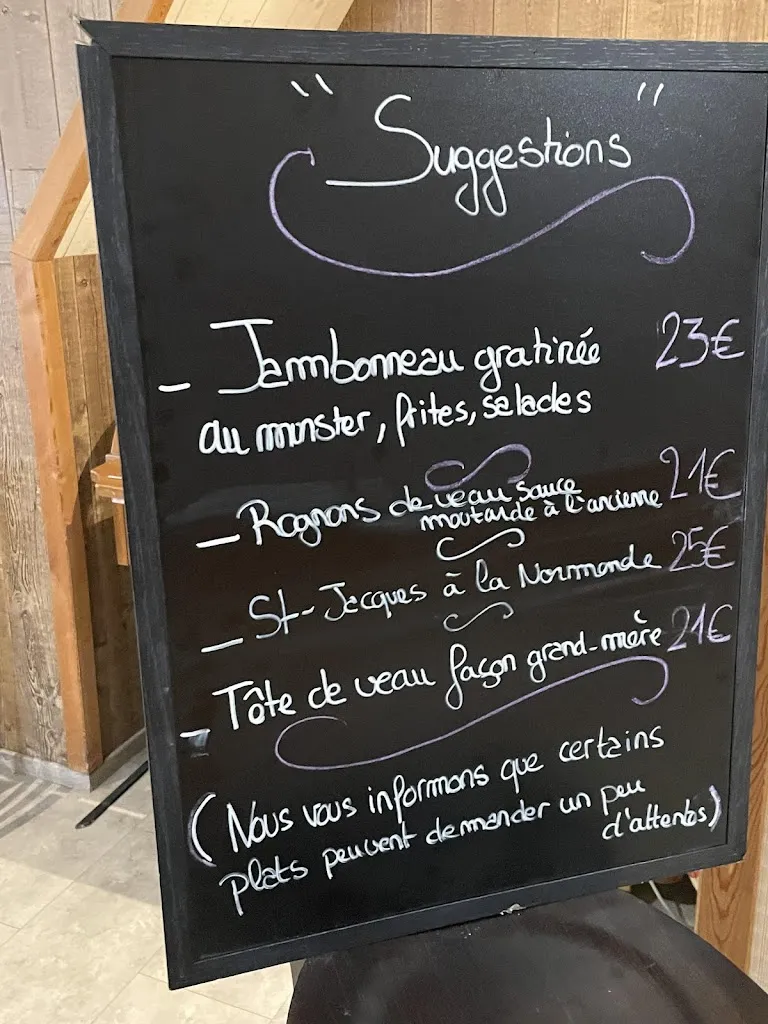 " Suggestions "
- Jambonneau gratinée 23€
au munster, frites, salades
- Rognons de veau sauce 21€
moutarde à l'ancienne
- St-Jacques à la Normande 25€
- Tête de veau façon grand-mère 21€
(Nous vous informons que certains
plats peuvent demander un peu
d'attentes)